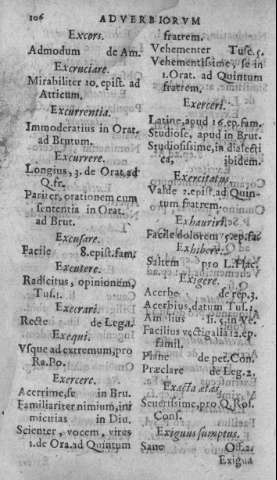 106 ADVERBIORVM
Excors.
Admodum de Am.
Excruciare.
Mirabiliter 10. epist. ad
Atticum.
Excurrentia.
Immoderatius in Orat.
ad Brutum.
Excurrere.
Longius, 3. de Orat. ad
Q. fr.
Pariter, orationem cum
sententia in Orat.
ad Brut.
Excusare.
Facile 8. epist. fam.
Excutere.
Radicitus, opinionem,
Tus. 1.
Execrari.
Recte de Lega.
Exequi.
Vsque ad extremum, pro
Ra. Po.
Exercere.
Acerrime, se in Bru.
Familiariter nimium, ini
micitias in Diu.
Scienter, vocem, vires
1. de Ora. ad Quintum
fratrem.
Vehementer Tusc. 5.
Vehementissime, se in
1. Orat. ad Quintum
fratrem.
Exerceri.
Latine, apud 16. ep. fam.
Studiose, apud in Brut.
Studiosissime, in dialecti
ca, ibidem.
Exercitatus.
Valde 2. epist. ad Quin
tum fratrem.
Exhauriri.
Facile dolorem 5. ep. fa.
Exhibere.
Saltem pro L. Flac.
Exigere.
Acerbe de rep. 3.
Acerbius, datum Tus. 1.
Facilius vectigalia 12. ep.
famil.
Plane de pet. Con.
Præclare de Leg. 2.
Exacta ætas.
Seuerissime, pro Q. Ros.
Com.
Exiguus sumptus.
Sane Off. 2.
Exigua